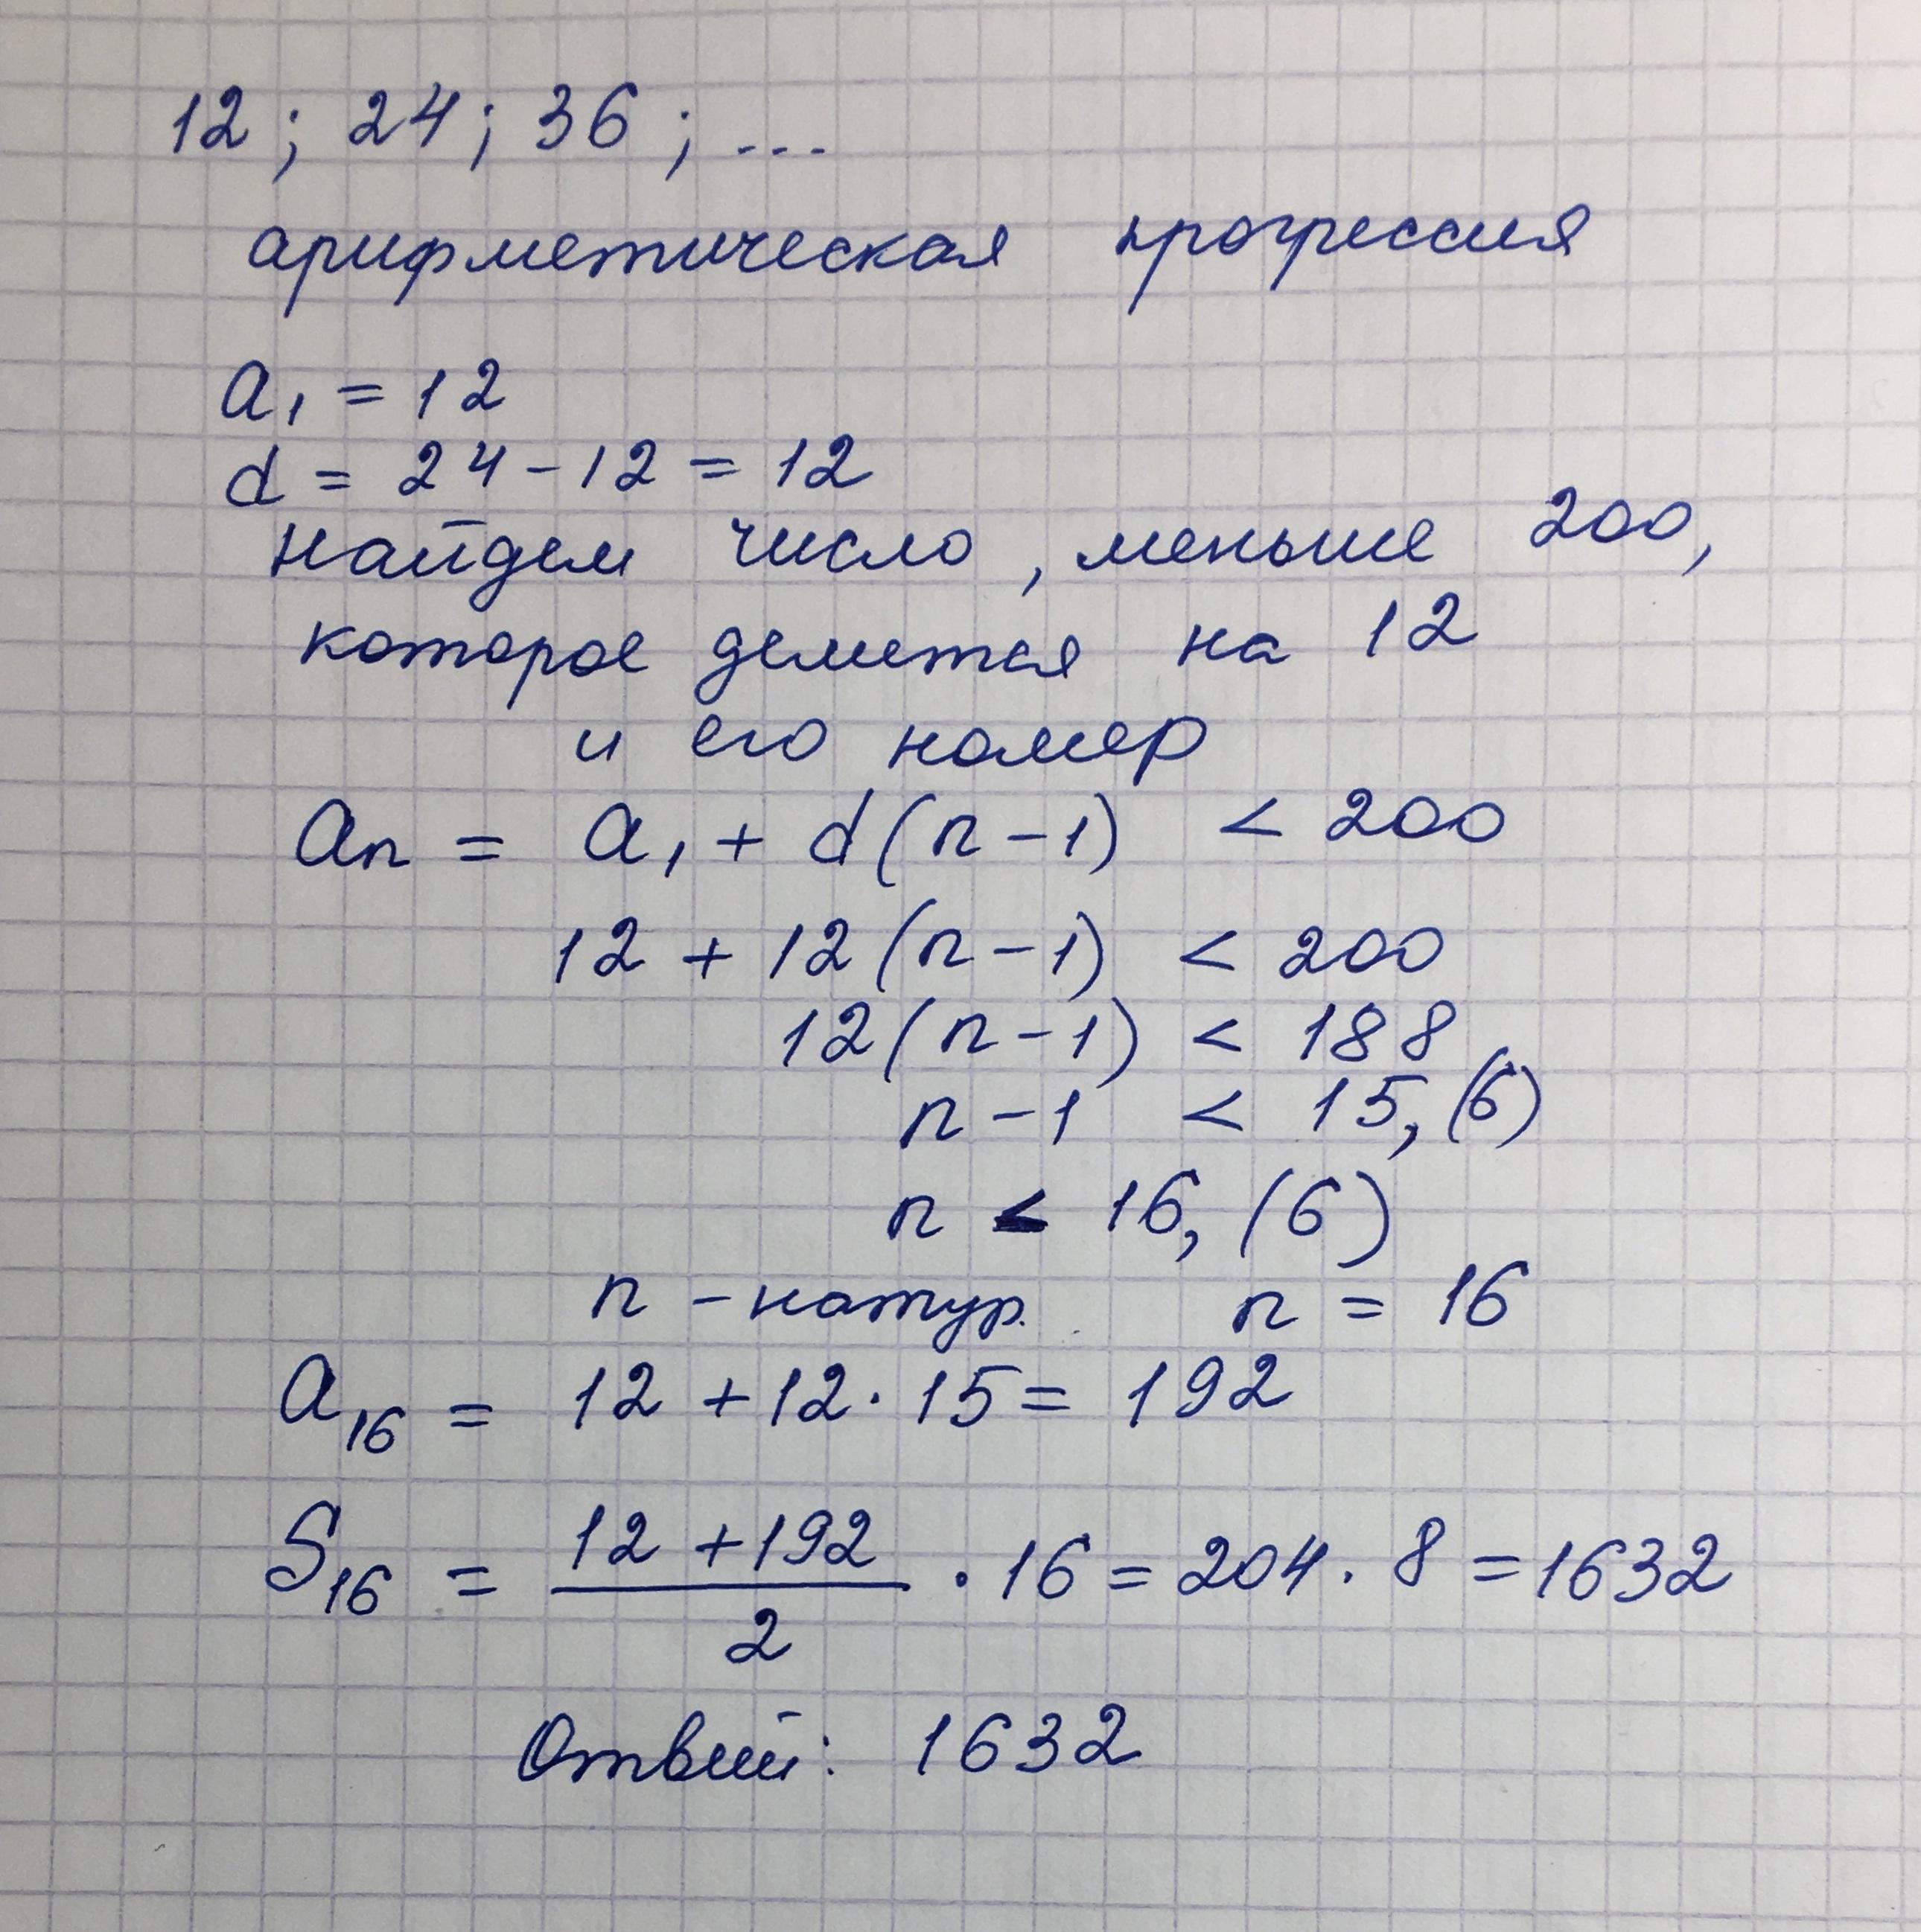 12; 24; 36; ...
арифметическая прогрессия
a₁ = 12
d = 24 - 12 = 12
найдем число, меньше 200,
которое делится на 12
и его номер
aₙ = a₁ + d(n - 1) < 200
12 + 12(n - 1) < 200
12(n - 1) < 188
n - 1 < 15,(6)
n < 16,(6)
n - натур. n = 16
a₁₆ = 12 + 12 · 15 = 192
S₁₆ = (12 + 192)/2 · 16 = 204 · 8 = 1632
Ответ: 1632